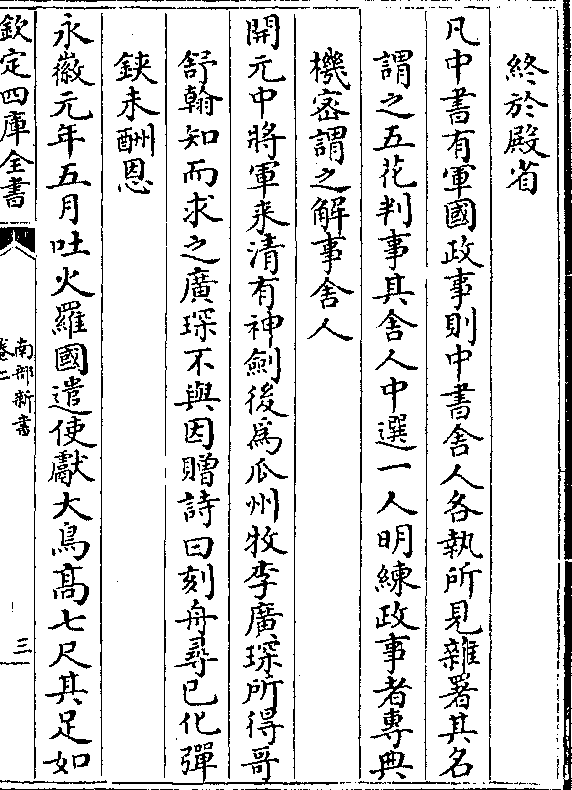 終於殿省
凡中書有軍國政事則中書舍人各執所見雜署其名
謂之五花判事其舍人中選一人明練政事者專典
機宻謂之解事舍人
開元中將軍来清有神劍後為瓜州牧李廣琛所得哥
舒翰知而求之廣琛不與因贈詩曰刻舟尋已化彈
鋏未酬恩
永徽元年五月吐火羅國遣使獻大鳥髙七尺其足如
欽定四庫全書
南部新書
三